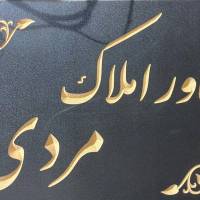 املاک
مردی